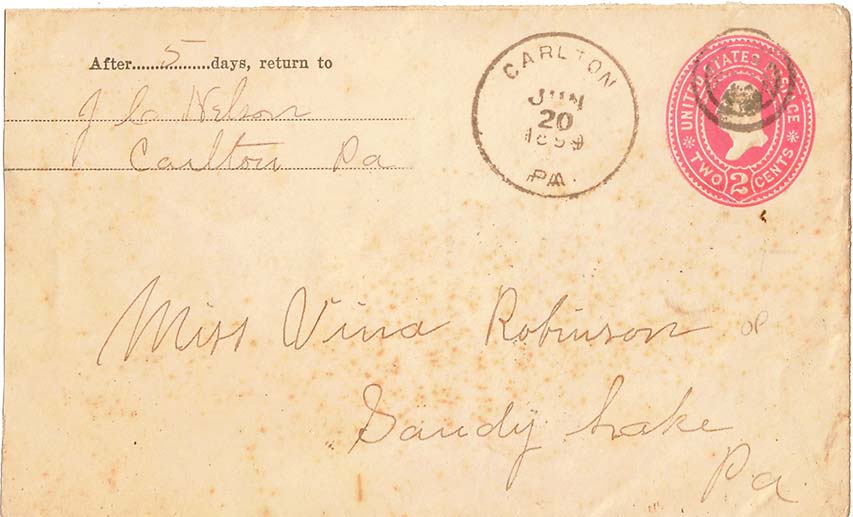 After......5......days, return to
J C Nelson
Carlton Pa
CARLTON
JUN
20
1899
PA.
UNITED STATES POSTAGE
TWO 2 CENTS
Miss Vina Robinson
OP
Sandy Lake
Pa